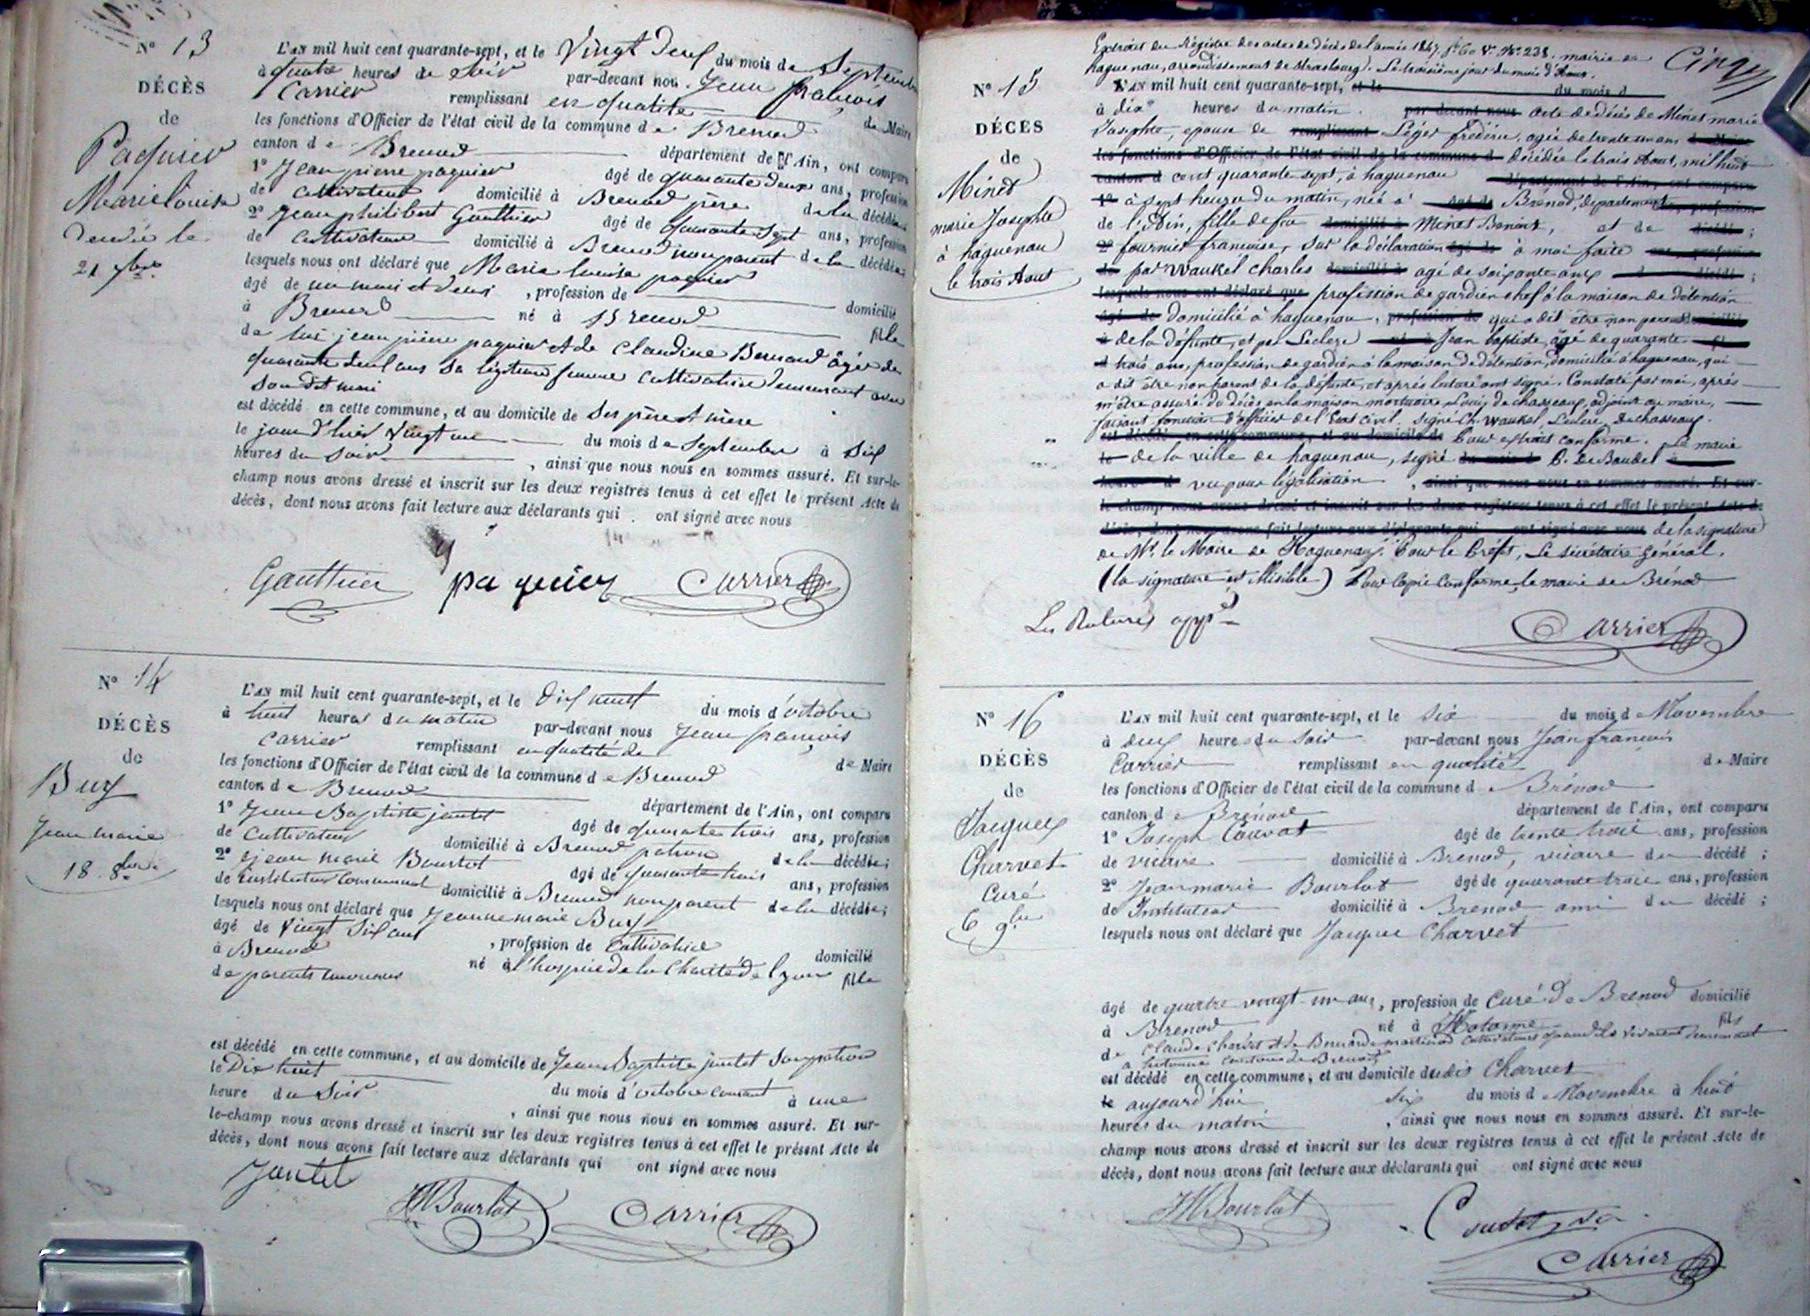 N° 13
DÉCÈS
de
Paquier
Marie Louise
21 7bre
L'AN mil huit cent quarante-sept, et le vingt deux du mois de Septembre
à quatre heures de soir par-devant nous Jean françois
Carrier remplissant en qualité de Maire
les fonctions d'Officier de l'état civil de la commune de Brenod
canton de Brenod département de l'Ain, ont comparu
1° Jean pierre paquier âgé de quarante deux ans, profession
de cultivateur domicilié à Brenod père de la décédée
2° Jean philibert Gauthier âgé de quarante sept ans, profession
de cultivateur domicilié à Brenod non parent de la décédée
lesquels nous ont déclaré que Marie louise paquier
âgé de un mois et demi, profession de domicilié
à Brenod né à Brenod fille
de lui jean pierre paquier et de Claudine Bernard âgée de
quarante deux ans sa légitime femme cultivatrice demeurant avec
son dit mari
est décédé en cette commune, et au domicile de ses père et mère
le jour d'hier vingt un du mois de septembre à six
heures du soir, ainsi que nous nous en sommes assuré. Et sur-le-
champ nous avons dressé et inscrit sur les deux registres tenus à cet effet le présent Acte de
décès, dont nous avons fait lecture aux déclarants qui ont signé avec nous
Gauthier paquier Carrier
N° 14
DÉCÈS
de
Buy
Jean marie
18 8bre
L'AN mil huit cent quarante-sept, et le dix neuf du mois d'octobre
à huit heures du matin par-devant nous Jean françois
Carrier remplissant en qualité de de Maire
les fonctions d'Officier de l'état civil de la commune de Brenod
canton de Brenod
département de l'Ain, ont comparu
1° Jean Baptiste jantet âgé de quarante trois ans, profession
de cultivateur domicilié à Brenod patron de la décédée;
2° jean marie Bourlot âgé de quarante trois ans, profession
de instituteur communal domicilié à Brenod non parent de la décédée;
lesquels nous ont déclaré que Jeanne marie Buy
âgé de vingt six ans, profession de cultivatrice domicilié
à Brenod né à l'hospice de la Charité de lyon fille
de parents inconnus
est décédé en cette commune, et au domicile de Jean Baptiste jantet son patron
le Dix huit du mois d'octobre courant à une
heure du soir, ainsi que nous nous en sommes assuré. Et sur-
le-champ nous avons dressé et inscrit sur les deux registres tenus à cet effet le présent Acte de
décès, dont nous avons fait lecture aux déclarants qui ont signé avec nous
Jantet
JM Bourlot Carrier
Extrait du Régistre des actes de décès de l'année 1847. f° 60 V. N° 238. mairie de
haguenau, arrondissement de Strasbourg. Le troisième jour du mois d'Aout.
N° 15
DÉCÈS
de
Minet
marie Josephte
à haguenau
le trois Aout
L'AN mil huit cent quarante-sept, et le du mois d
à dix heures du matin. par-devant nous acte de décès de Minet marie
Josephte, epouse de remplissant Léger frédéric, agée de trente un ans
les fonctions d'Officier de l'état civil de la commune d décédée le trois Aout, mil huit
canton d cent quarante sept, à haguenau département de l'Ain, ont comparu
1° à sept heures du matin, née à âgé de Brénod, département, profession
de l'Ain, fille de feu domicilié à Minet Benoit, et de décédé;
2° fournier francoise, Sur la déclaration âgé de à moi faite
de par Waukel Charles domicilié à agé de soixante ans décédé;
lesquels nous ont déclaré que profession de gardien chef à la maison de détention
âgé de domicilié à haguenau, profession de qui a dit être non parent domicilié
à de la défunte, et par Leclerc né à Jean baptiste, âgé de quarante
d trois ans, profession de gardien à la maison de détention, domicilié à haguenau, qui
a dit être non parent de la défunte, et après lecture ont signé. Constaté par moi, après
m'être assuré du décès en la maison mortuaire, Louis de chasseaux, adjoint au maire,
faisant fonction d'officier de l'Etat civil. Signé Ch. Waukel, Leclerc, Dechasseaux.
est décédé en cette commune, et au domicile de Pour extrait conforme. Le maire
le de la ville de haguenau, signé du mois d P. DeBaudel à
heures d vu pour légalisation, ainsi que nous nous en sommes assuré. Et sur-
le-champ nous avons dressé et inscrit sur les deux registres tenus à cet effet le présent Acte de
décès, dont nous avons fait lecture aux déclarants qui ont signé avec nous de la signature
de Mr. le Maire de Haguenau. Pour le Préfet, Le secrétaire Général.
(la signature est illisible) Pour copie conforme, le maire de Brénod
Les Ratures
Carrier
N° 16
DÉCÈS
de
Jacques
Charvet
Curé
6 9bre
L'AN mil huit cent quarante-sept, et le six du mois de Novembre
à deux heures du soir par-devant nous Jean francois
Carrier remplissant en qualité de Maire
les fonctions d'Officier de l'état civil de la commune d Brénod
canton de Brénod département de l'Ain, ont comparu
1° Joseph âgé de trente trois ans, profession
de vicaire domicilié à Brenod, vicaire du décédé;
2° Jean marie Bourlot âgé de quarante trois ans, profession
de Instituteur domicilié à Brenod ami du décédé;
lesquels nous ont déclaré que Jacques Charvet
âgé de quatre vingt un ans, profession de Curé de Brenod domicilié
à Brenod né à Hotonne fils
de Claude Charvet et de Bernarde martinod cultivateurs quand ils vivaient demeurant
à hotonne canton de Brenod
est décédé en cette commune, et au domicile dudit Charvet
le aujourd'hui six du mois de Novembre à huit
heures du matin, ainsi que nous nous en sommes assuré. Et sur-le-
champ nous avons dressé et inscrit sur les deux registres tenus à cet effet le présent Acte de
décès, dont nous avons fait lecture aux déclarants qui ont signé avec nous
JM Bourlot
Carrier